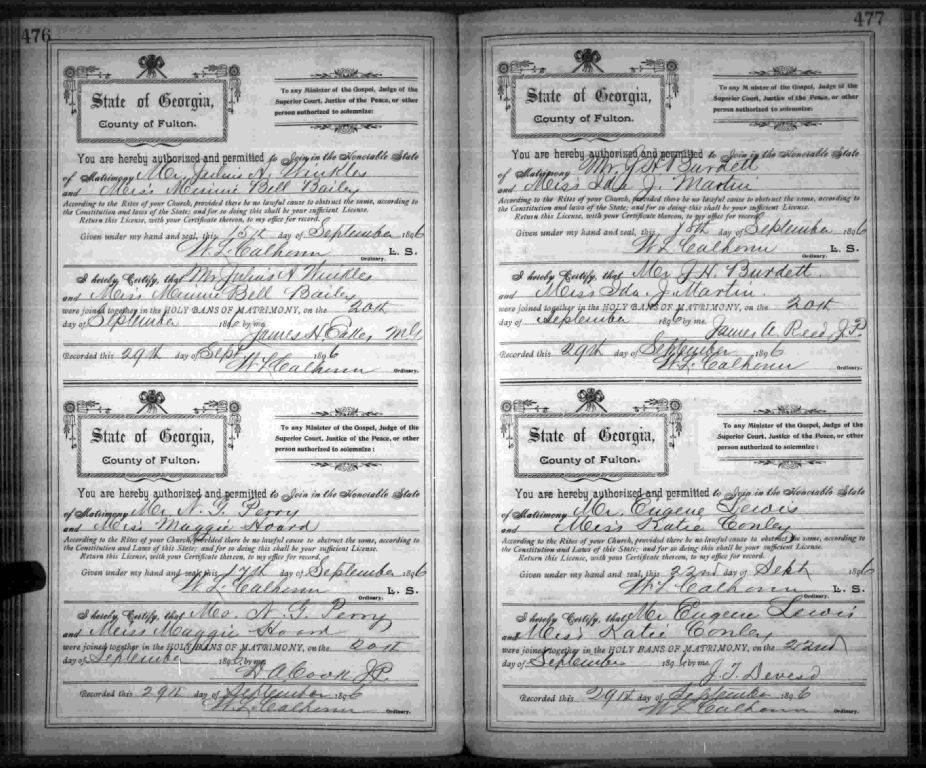 476
State of Georgia,
County of Fulton.
To any Minister of the Gospel, Judge of the
Superior Court, Justice of the Peace, or other
person authorized to solemnize:
You are hereby authorized and permitted to Join in the Honorable State
of Matrimony Mr. Julius A. Winkles
and Miss Minnie Bell Bailey
According to the Rites of your Church, provided there be no lawful cause to obstruct the same, according to
the Constitution and laws of the State; and for so doing this shall be your sufficient License.
Return this License, with your Certificate thereon, to my office for record.
Given under my hand and seal, this 15th day of September 1896
W. L. Calhoun L. S.
Ordinary.
I hereby Certify, that Mr Julius A Winkles
and Miss Minnie Bell Bailey
were joined together in the HOLY BANS OF MATRIMONY, on the 20th
day of September 1896 by me.
James H. M.G
Recorded this 29th day of Sept 1896
W L Calhoun Ordinary.
State of Georgia,
County of Fulton.
To any Minister of the Gospel, Judge of the
Superior Court, Justice of the Peace, or other
person authorized to solemnize:
You are hereby authorized and permitted to Join in the Honorable State
of Matrimony Mr. N. G. Perry
and Miss Maggie Hoard
According to the Rites of your Church, provided there be no lawful cause to obstruct the same, according to
the Constitution and Laws of this State; and for so doing this shall be your sufficient License.
Return this License, with your Certificate thereon, to my office for record.
Given under my hand and seal, this 17th day of September 1896
W. L. Calhoun L. S.
Ordinary.
I hereby Certify, that Mr. N. G. Perry
and Miss Maggie Hoard
were joined together in the HOLY BANS OF MATRIMONY, on the 20th
day of September 1896 by me.
D A Cook J.P.
Recorded this 29th day of September 1896
W. L. Calhoun Ordinary.
477
State of Georgia,
County of Fulton.
To any Minister of the Gospel, Judge of the
Superior Court, Justice of the Peace, or other
person authorized to solemnize:
You are hereby authorized and permitted to Join in the Honorable State
of Matrimony Mr. J H Burdett
and Miss Ida J. Martin
According to the Rites of your Church, provided there be no lawful cause to obstruct the same, according to
the Constitution and laws of the State; and for so doing this shall be your sufficient License.
Return this License, with your Certificate thereon, to my office for record.
Given under my hand and seal, this 18th day of September 1896
W. L. Calhoun L. S.
Ordinary.
I hereby Certify, that Mr J. H. Burdett
and Miss Ida J. Martin
were joined together in the HOLY BANS OF MATRIMONY, on the 20th
day of September 1896 by me.
James A. Reed J.P.
Recorded this 29th day of September 1896
W. L. Calhoun Ordinary.
State of Georgia,
County of Fulton.
To any Minister of the Gospel, Judge of the
Superior Court, Justice of the Peace, or other
person authorized to solemnize:
You are hereby authorized and permitted to Join in the Honorable State
of Matrimony Mr. Eugene Lewis
and Miss Katie Conley
According to the Rites of your Church, provided there be no lawful cause to obstruct the same, according to
the Constitution and Laws of this State; and for so doing this shall be your sufficient License.
Return this License, with your Certificate thereon, to my office for record.
Given under my hand and seal, this 22nd day of Sept 1896
W L Calhoun L. S.
Ordinary.
I hereby Certify, that Mr Eugene Lewis
and Miss Katie Conley
were joined together in the HOLY BANS OF MATRIMONY, on the 22nd
day of September 1896 by me.
J. T.
Recorded this 29th day of September 1896
W L Calhoun Ordinary.